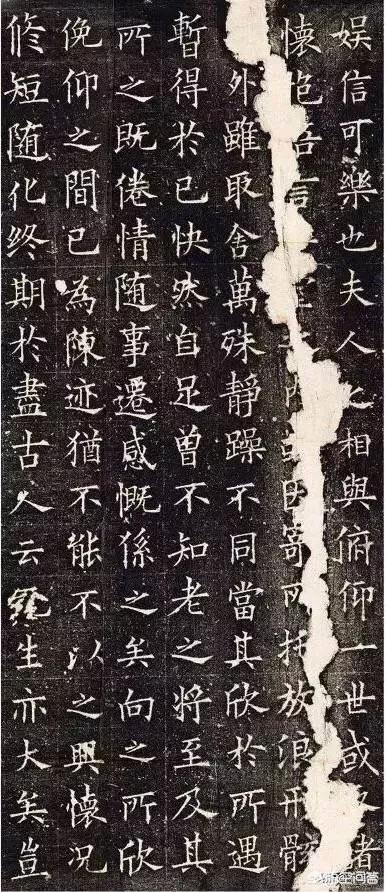 娱信可樂也夫人之相與俯仰一世或諸
懷抱言因寄所托放浪形骸
外雖取舍萬殊靜躁不同當其欣於所遇
暫得於己快然自足曾不知老之將至及其
所之既倦情随事遷感慨係之矣向之所欣
俛仰之間已為陳迹猶不能不以之興懷況
修短随化终期於盡古人云生亦大矣豈